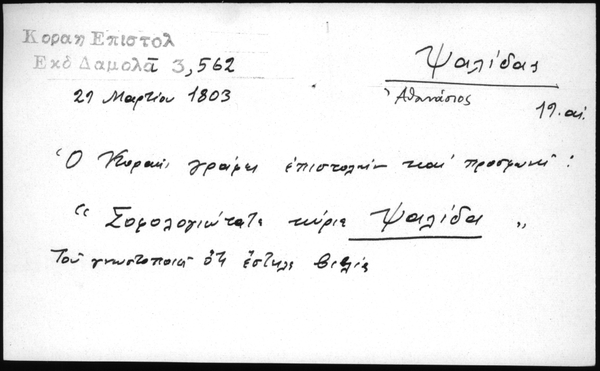 Κοραη Επιστολ
Εκδ Δαμαλᾶ 3, 562
Ψαλίδας
Ἀθανάσιος
29 Μαρτίου 1803
19. αἰ.
Ὁ Κοραῆς γράφει ἐπιστολὴν καὶ προσφωνεῖ :
“ Σοφολογιώτατε κύριε Ψαλίδα „
Τοῦ γνωστοποιεῖ ὅτι ἔστειλε βιβλία